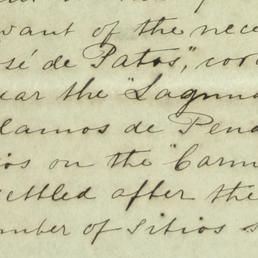 want of the nece
osé de Patos", co
ear the "Laguna
lamos de Pena
ios on the "Carm
ettled after the
mber of Sitios s